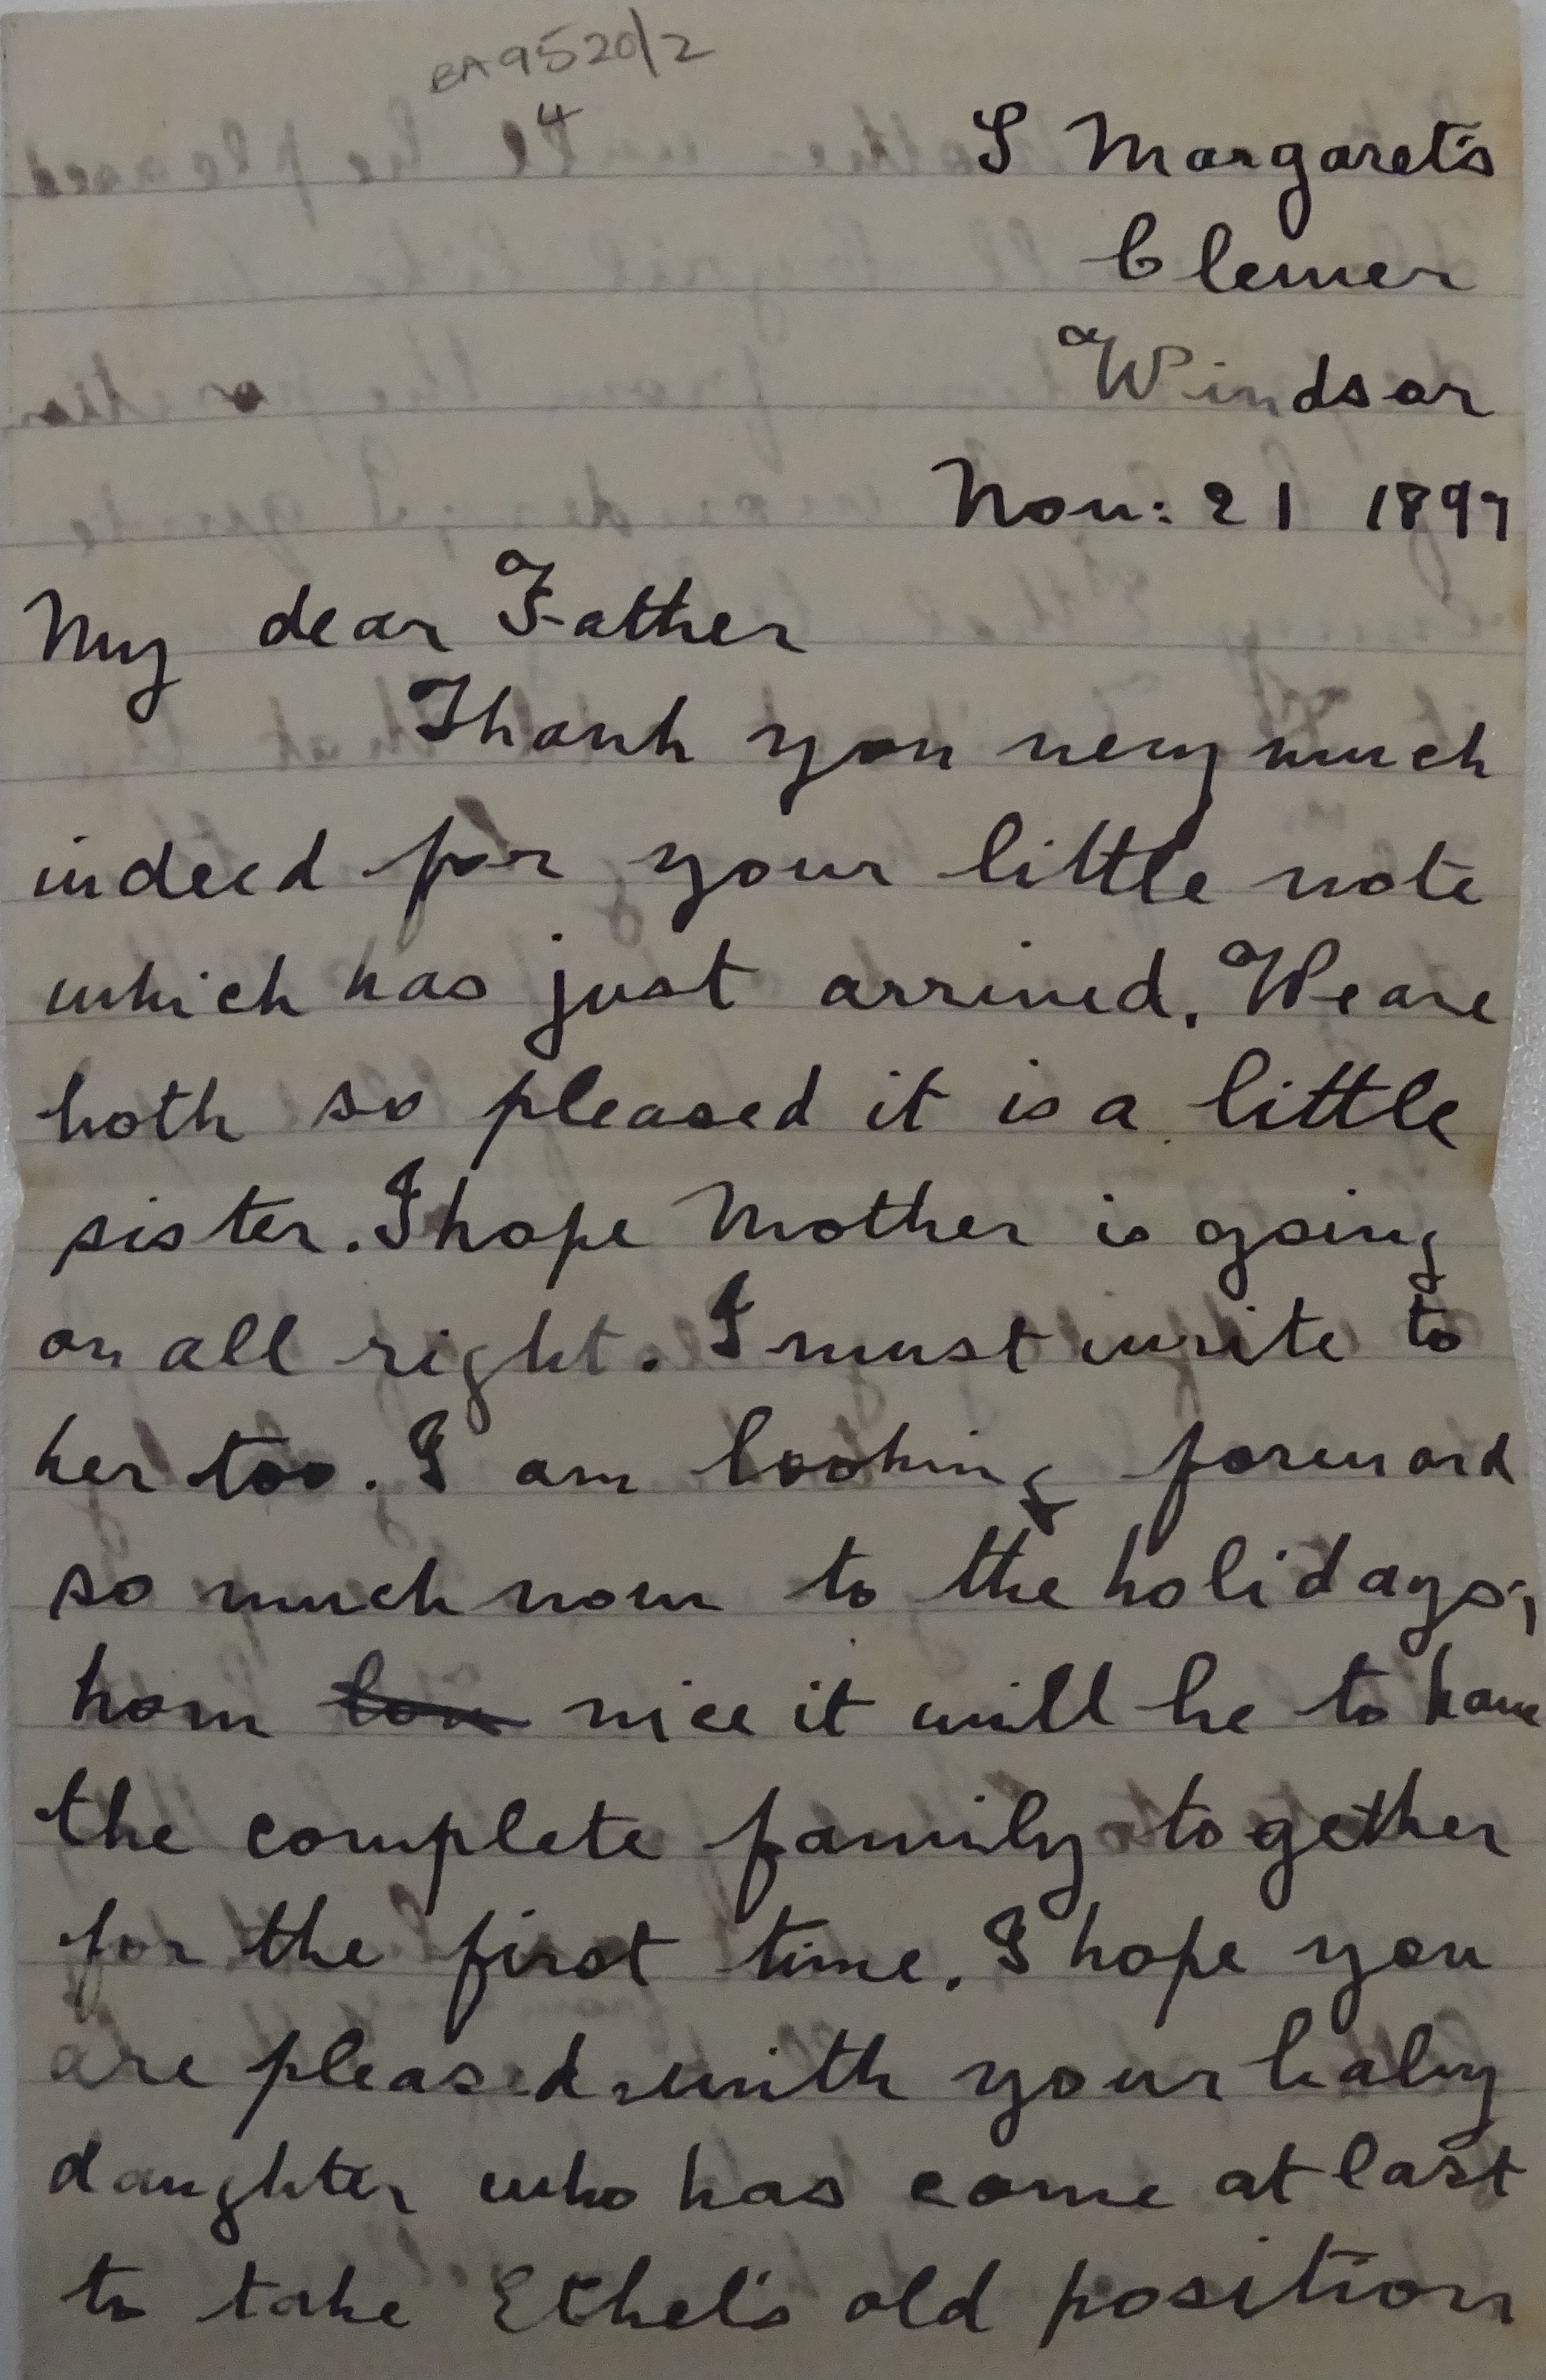 BA9520/2
4
S Margaret's
Clewer
Windsor
Nov: 21 1897
My dear Father
Thank you very much
indeed for your little note
which has just arrived. We are
both so pleased it is a little
sister. I hope Mother is going
on all right. I must write to
her too. I am looking forward
so much now to the holidays;
how nice it will be to have
the complete family together
for the first time. I hope you
are pleased with your baby
daughter who has come at last
to take Ethel's old position